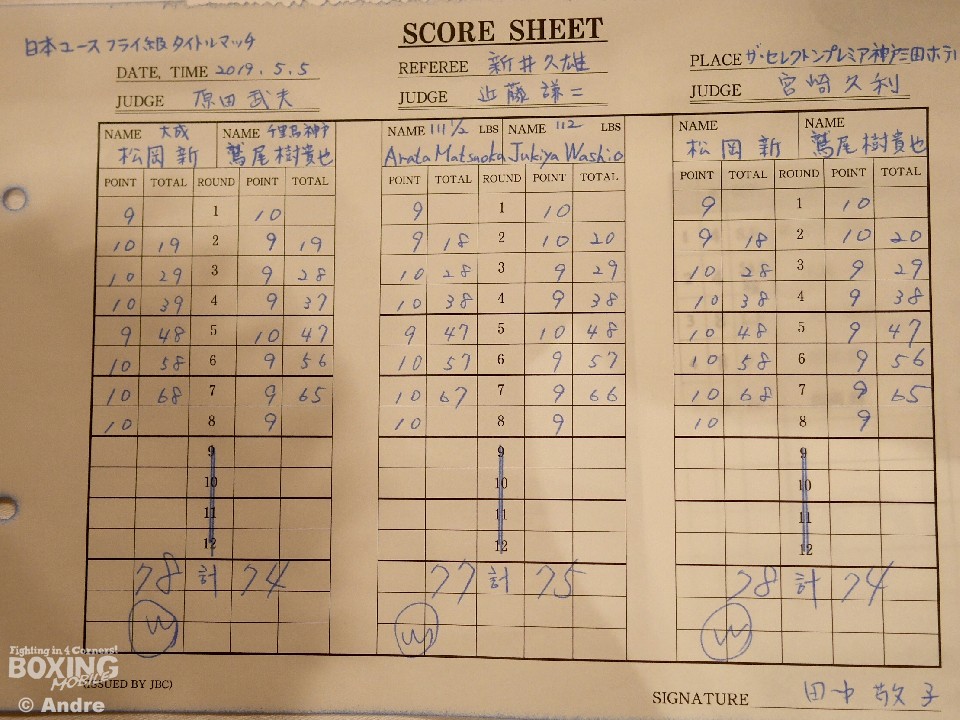 SCORE SHEET
日本ユース フライ級 タイトルマッチ
DATE, TIME 2019. 5. 5 REFEREE 新井久雄 PLACE ザ・セレクトンプレミア神戸三田ホテル
JUDGE 原田 武夫 JUDGE 近藤 謙二 JUDGE 宮崎久利
NAME 大成 NAME 千里馬神戸 NAME 111 1/2 LBS NAME 112 LBS NAME NAME
松岡 新 鷲尾 樹貴也 Arata Matsuoka Jukiya Washio 松岡 新 鷲尾 樹貴也
POINT TOTAL ROUND POINT TOTAL POINT TOTAL ROUND POINT TOTAL POINT TOTAL ROUND POINT TOTAL
9 1 10 9 1 10 9 1 10
10 19 2 9 19 9 18 2 10 20 9 18 2 10 20
10 29 3 9 28 10 28 3 9 29 10 28 3 9 29
10 39 4 9 37 10 38 4 9 38 10 38 4 9 38
9 48 5 10 47 9 47 5 10 48 10 48 5 9 47
10 58 6 9 56 10 57 6 9 57 10 58 6 9 56
10 68 7 9 65 10 67 7 9 66 10 68 7 9 65
10 8 9 10 8 9 10 8 9
9 9 9
10 10 10
11 11 11
12 12 12
78 計 74 77 計 75 78 計 74
W W W
Fighting in 4 Corners!
BOXING
MOBILE
(ISSUED BY JBC)
© Andre
SIGNATURE 田中 敬子